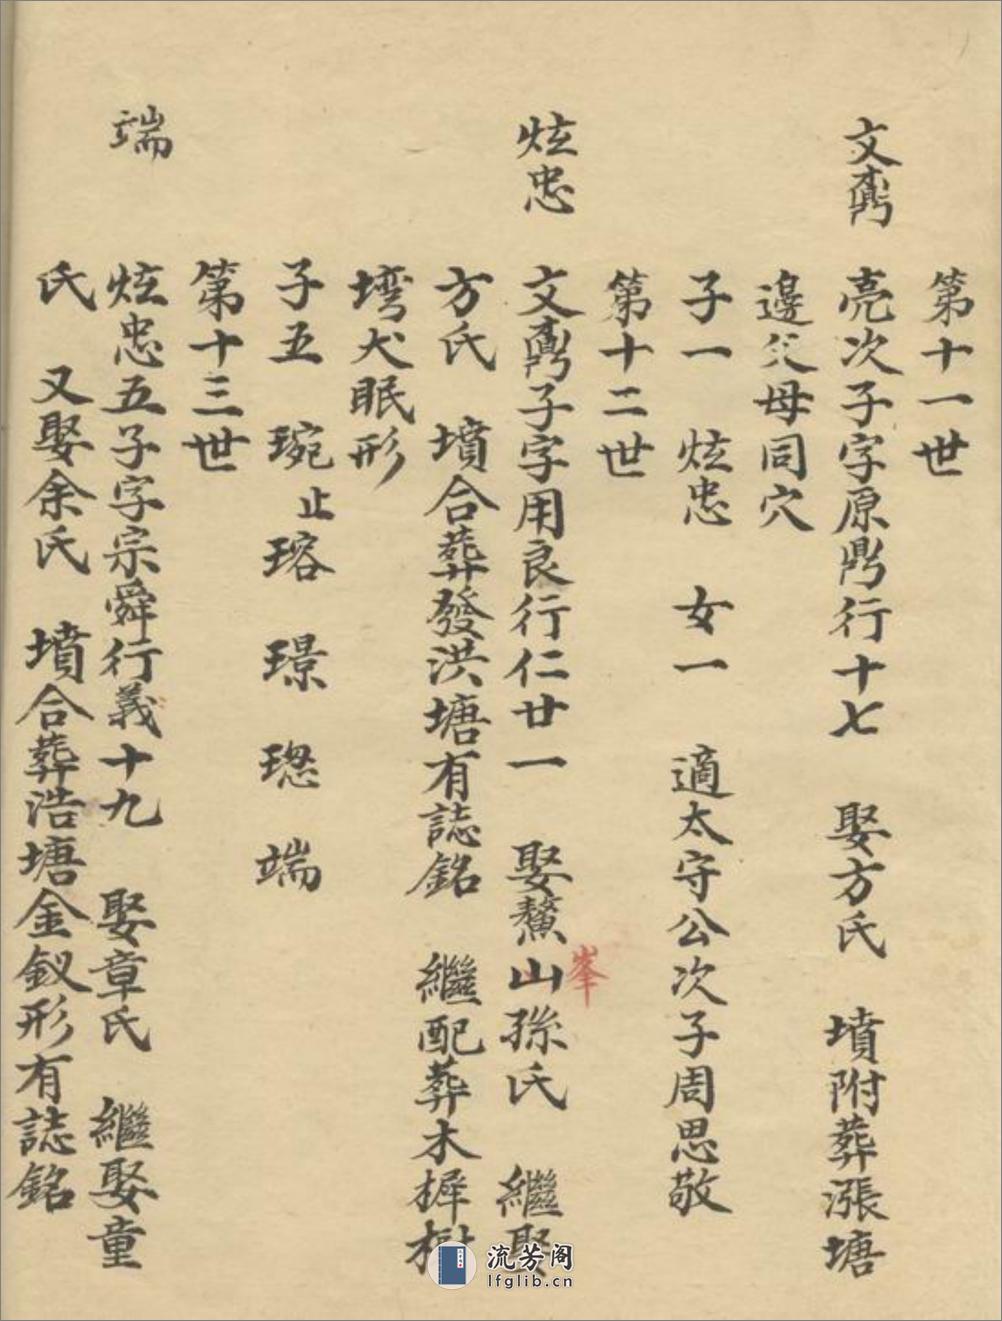 第十一世
文鼐
亮次子字原鼎行十七 娶方氏 墳附葬漲塘
邊父母同穴
子一 炫忠 女一 適太守公次子周思敬
第十二世
炫忠
文鼐子字用良行仁廿一 娶鰲山孫氏 繼娶
峯
方氏 墳合葬發洪塘有誌銘 繼配葬木樨樹
塆犬眠形
子五 琬止 瑢 璟 璁 端
第十三世
端
炫忠五子字宗舜行義十九 娶章氏 繼娶童
氏 又娶余氏 墳合葬浩塘金釵形有誌銘
流芳阁
lfglib.cn